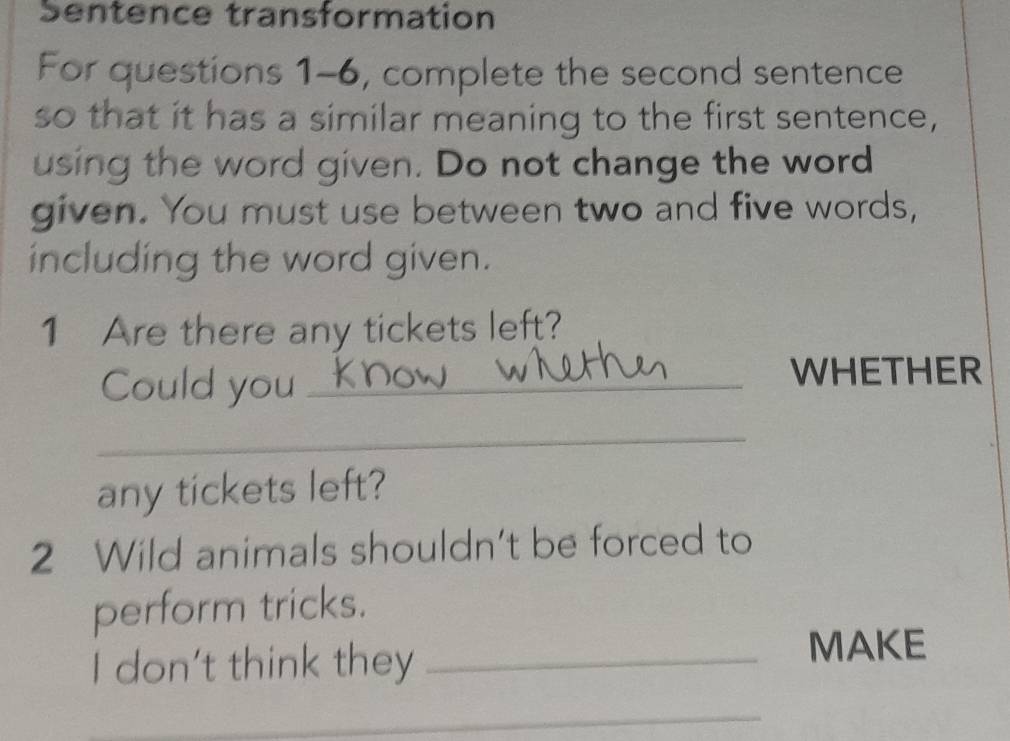 Sentence transformation
For questions 1–6, complete the second sentence
so that it has a similar meaning to the first sentence,
using the word given. Do not change the word
given. You must use between two and five words,
including the word given.
1 Are there any tickets left?
Could you know whether WHETHER
any tickets left?
2 Wild animals shouldn't be forced to
perform tricks.
I don't think they MAKE